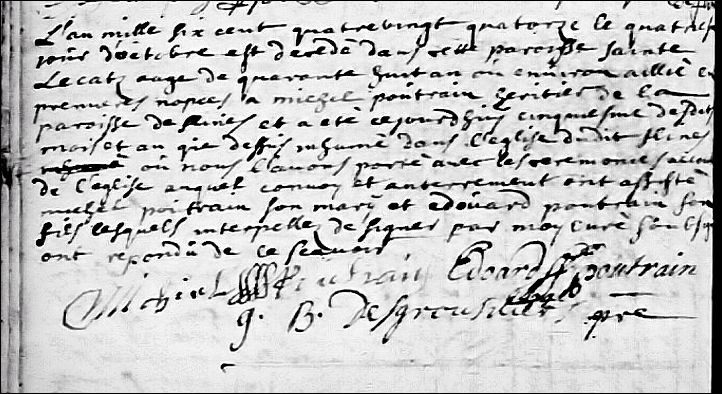 L'an mille six cent quatrevingt quatorze le quatriesme
jour d'octobre est decede dans cette paroisse sainte
Lecatz auge de quarante huit an ou environ aillié en
premieres nopces a michel poutrain heritier de la
paroisse de flines et a été cejourdhui cinquiesme desdits
mois et an que dessus inhumé dans l'eglise dudit flines
ou nous l'avons porté avec les ceremonies
de l'eglise auquel convoy et anterrement ont assisté
michel poitrain son mary et edouard poutrain son
fils lesquels interpellez de signer par moy curé soubsig
ont repondu de ce scavoir
Michiel poutrain Edoard poutrain
g. B. Desgrousilliers pre